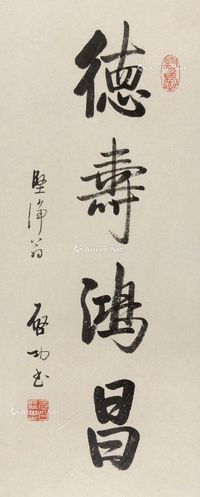 德壽鴻昌
堅净翁
啓功書